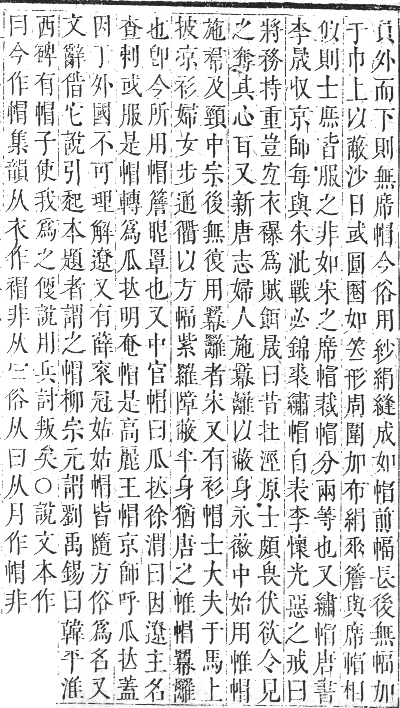 貟外而下則無席帽今俗用紗絹縫成如帽前幅長後無幅加
于巾上以蔽沙日或圓圈如笠形周圍加布絹爲簷與席帽相
似則士庶皆服之非如宋之席帽裁帽分兩等也又繡帽唐書
李晟収京師每與朱泚戰必錦裘繡帽自表李懷光惡之戒曰
將務持重豈宜衣襮爲賊餌晟曰昔在涇原士頗畏伏欲令見
之奪其心耳又新唐志婦人施羃䍦以蔽身永徽中始用帷帽
施裙及頸中宗後無復用羃䍦者宋又有衫帽士大夫于馬上
披凉衫婦女步通衢以方幅紫羅障蔽半身猶唐之帷帽羃䍦
也卽今所用帽簷眼罩也又中官帽曰瓜拉徐渭曰因遼主名
查剌或服是帽轉爲瓜拉明奄帽是高麗王帽京師呼瓜拉蓋
因丁外國不可理解遼又有薛衮冠姑姑帽皆隨方俗爲名又
文辭借它說引起本題者謂之帽柳宗元謂劉禹錫曰韓平淮
西碑有帽子使我爲之便說用兵討叛矣○說文本作
曰今作帽集韻从衣作䙃非从冃俗从曰从月作帽非